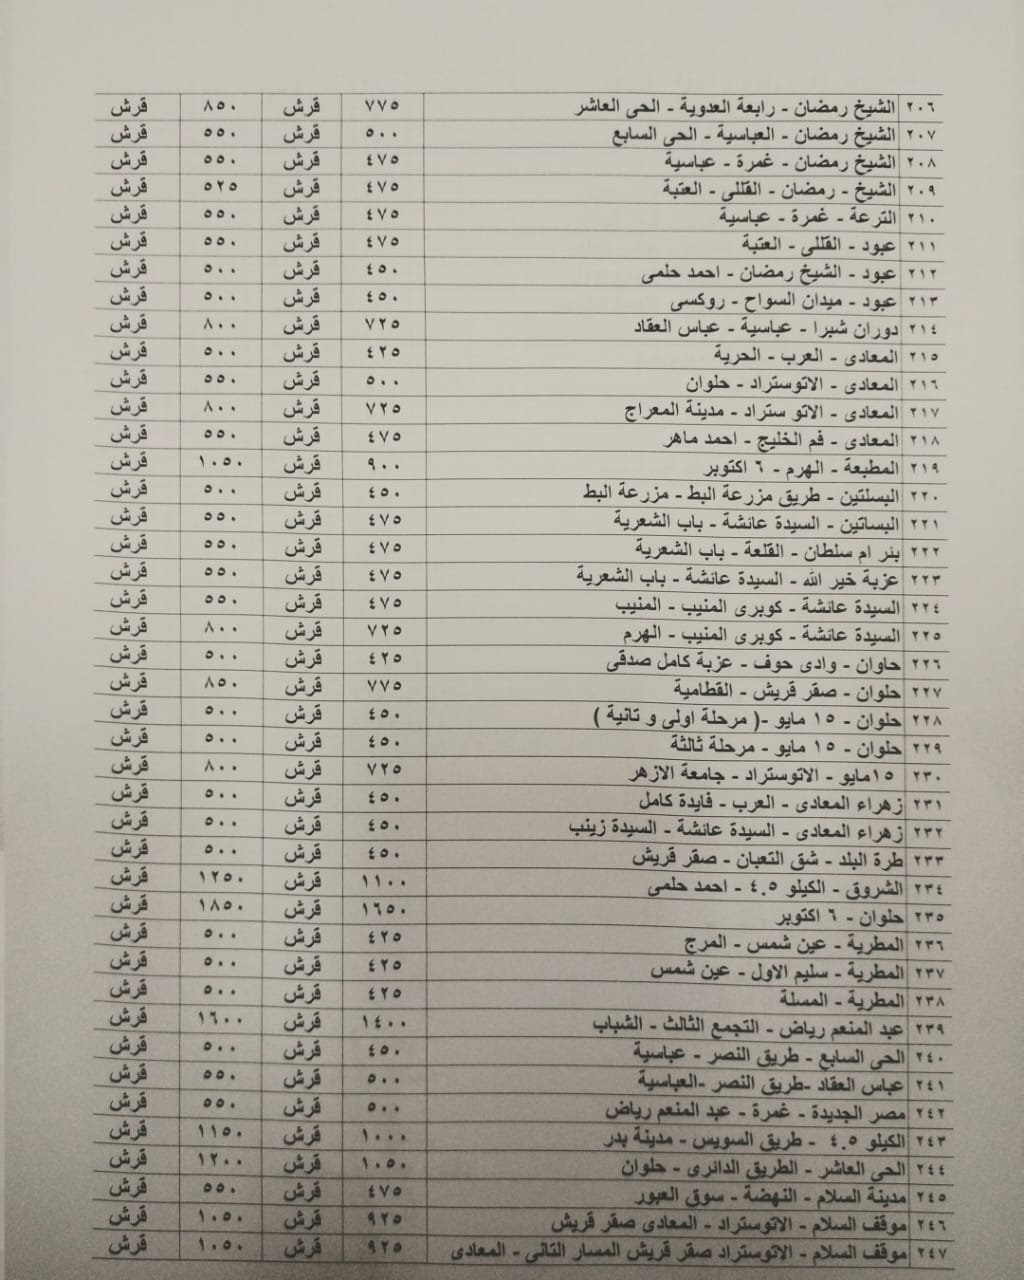 ٢٠٦ الشيخ رمضان - رابعة العدوية - الحى العاشر ٧٧٥ قرش ٨٥٠ قرش
٢٠٧ الشيخ رمضان - العباسية - الحى السابع ٥٠٠ قرش ٥٥٠ قرش
٢٠٨ الشيخ رمضان - غمرة - عباسية ٤٧٥ قرش ٥٥٠ قرش
٢٠٩ الشيخ - رمضان - القللى - العتبة ٤٧٥ قرش ٥٢٥ قرش
٢١٠ الترعة - غمرة - عباسية ٤٧٥ قرش ٥٥٠ قرش
٢١١ عبود - القللى - العتبة ٤٧٥ قرش ٥٥٠ قرش
٢١٢ عبود - الشيخ رمضان - احمد حلمى ٤٥٠ قرش ٥٠٠ قرش
٢١٣ عبود - ميدان السواح - روكسى ٤٥٠ قرش ٥٠٠ قرش
٢١٤ دوران شبرا - عباسية - عباس العقاد ٧٢٥ قرش ٨٠٠ قرش
٢١٥ المعادى - العرب - الحرية ٤٢٥ قرش ٥٠٠ قرش
٢١٦ المعادى - الاتوستراد - حلوان ٥٠٠ قرش ٥٥٠ قرش
٢١٧ المعادى - الاتو ستراد - مدينة المعراج ٧٢٥ قرش ٨٠٠ قرش
٢١٨ المعادى - فم الخليج - احمد ماهر ٤٧٥ قرش ٥٥٠ قرش
٢١٩ المطبعة - الهرم - ٦ اكتوبر ٩٠٠ قرش ١٠٥٠ قرش
٢٢٠ البسلتين - طريق مزرعة البط - مزرعة البط ٤٥٠ قرش ٥٠٠ قرش
٢٢١ البساتين - السيدة عائشة - باب الشعرية ٤٧٥ قرش ٥٥٠ قرش
٢٢٢ بئر ام سلطان - القلعة - باب الشعرية ٤٧٥ قرش ٥٥٠ قرش
٢٢٣ عزبة خير الله - السيدة عائشة - باب الشعرية ٤٧٥ قرش ٥٥٠ قرش
٢٢٤ السيدة عائشة - كوبرى المنيب - المنيب ٤٧٥ قرش ٥٥٠ قرش
٢٢٥ السيدة عائشة - كوبرى المنيب - الهرم ٧٢٥ قرش ٨٠٠ قرش
٢٢٦ حاوان - وادى حوف - عزبة كامل صدقى ٤٢٥ قرش ٥٠٠ قرش
٢٢٧ حلوان - صقر قريش - القطامية ٧٧٥ قرش ٨٥٠ قرش
٢٢٨ حلوان - ١٥ مايو -( مرحلة اولى و تانية ) ٤٥٠ قرش ٥٠٠ قرش
٢٢٩ حلوان - ١٥ مايو - مرحلة ثالثة ٤٥٠ قرش ٥٠٠ قرش
٢٣٠ ١٥مايو - الاتوستراد - جامعة الازهر ٧٢٥ قرش ٨٠٠ قرش
٢٣١ زهراء المعادى - العرب - فايدة كامل ٤٥٠ قرش ٥٠٠ قرش
٢٣٢ زهراء المعادى - السيدة عائشة - السيدة زينب ٤٥٠ قرش ٥٠٠ قرش
٢٣٣ طرة البلد - شق التعبان - صقر قريش ٤٥٠ قرش ٥٠٠ قرش
٢٣٤ الشروق - الكيلو ٤.٥ - احمد حلمى ١١٠٠ قرش ١٢٥٠ قرش
٢٣٥ حلوان - ٦ اكتوبر ١٦٥٠ قرش ١٨٥٠ قرش
٢٣٦ المطرية - عين شمس - المرج ٤٢٥ قرش ٥٠٠ قرش
٢٣٧ المطرية - سليم الاول - عين شمس ٤٢٥ قرش ٥٠٠ قرش
٢٣٨ المطرية - المسلة ٤٢٥ قرش ٥٠٠ قرش
٢٣٩ عبد المنعم رياض - التجمع الثالث - الشباب ١٤٠٠ قرش ١٦٠٠ قرش
٢٤٠ الحى السابع - طريق النصر - عباسية ٤٥٠ قرش ٥٠٠ قرش
٢٤١ عباس العقاد -طريق النصر -العباسية ٥٠٠ قرش ٥٥٠ قرش
٢٤٢ مصر الجديدة - غمرة - عبد المنعم رياض ٥٠٠ قرش ٥٥٠ قرش
٢٤٣ الكيلو ٤.٥ - طريق السويس - مدينة بدر ١٠٠٠ قرش ١١٥٠ قرش
٢٤٤ الحى العاشر - الطريق الدائرى - حلوان ١٠٥٠ قرش ١٢٠٠ قرش
٢٤٥ مدينة السلام - النهضة - سوق العبور ٤٧٥ قرش ٥٥٠ قرش
٢٤٦ موقف السلام - الاتوستراد - المعادى صقر قريش ٩٢٥ قرش ١٠٥٠ قرش
٢٤٧ موقف السلام - الاتوستراد صقر قريش المسار الثانى - المعادى ٩٢٥ قرش ١٠٥٠ قرش